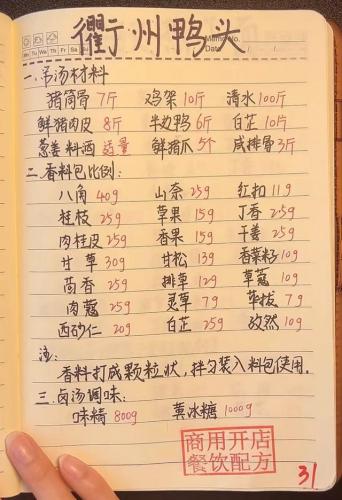 衢州鸭头
Memo No.
Mo Tu We Th Fr Sa Su
Date
一.吊汤材料
猪筒骨7斤 鸡架10斤 清水100斤
鲜猪肉皮8斤 牛边鸭6斤 白芷10斤
葱姜料酒适量 鲜猪爪5个 咸排骨3斤
二.香料包比例:
八角40g 山奈25g 红扣11g
桂枝25g 草果15g 丁香25g
肉桂皮25g 香果15g 干姜25g
甘草30g 甘松13g 香菜籽10g
茴香25g 排草12g 草蔻10g
肉蔻25g 灵草7g 荜拔7g
西砂仁20g 白芷25g 孜然10g
注:
香料打成颗粒状,拌匀装入料包使用.
三.卤汤调味:
味精800g 冰糖1000g
商用开店
餐饮配方
31